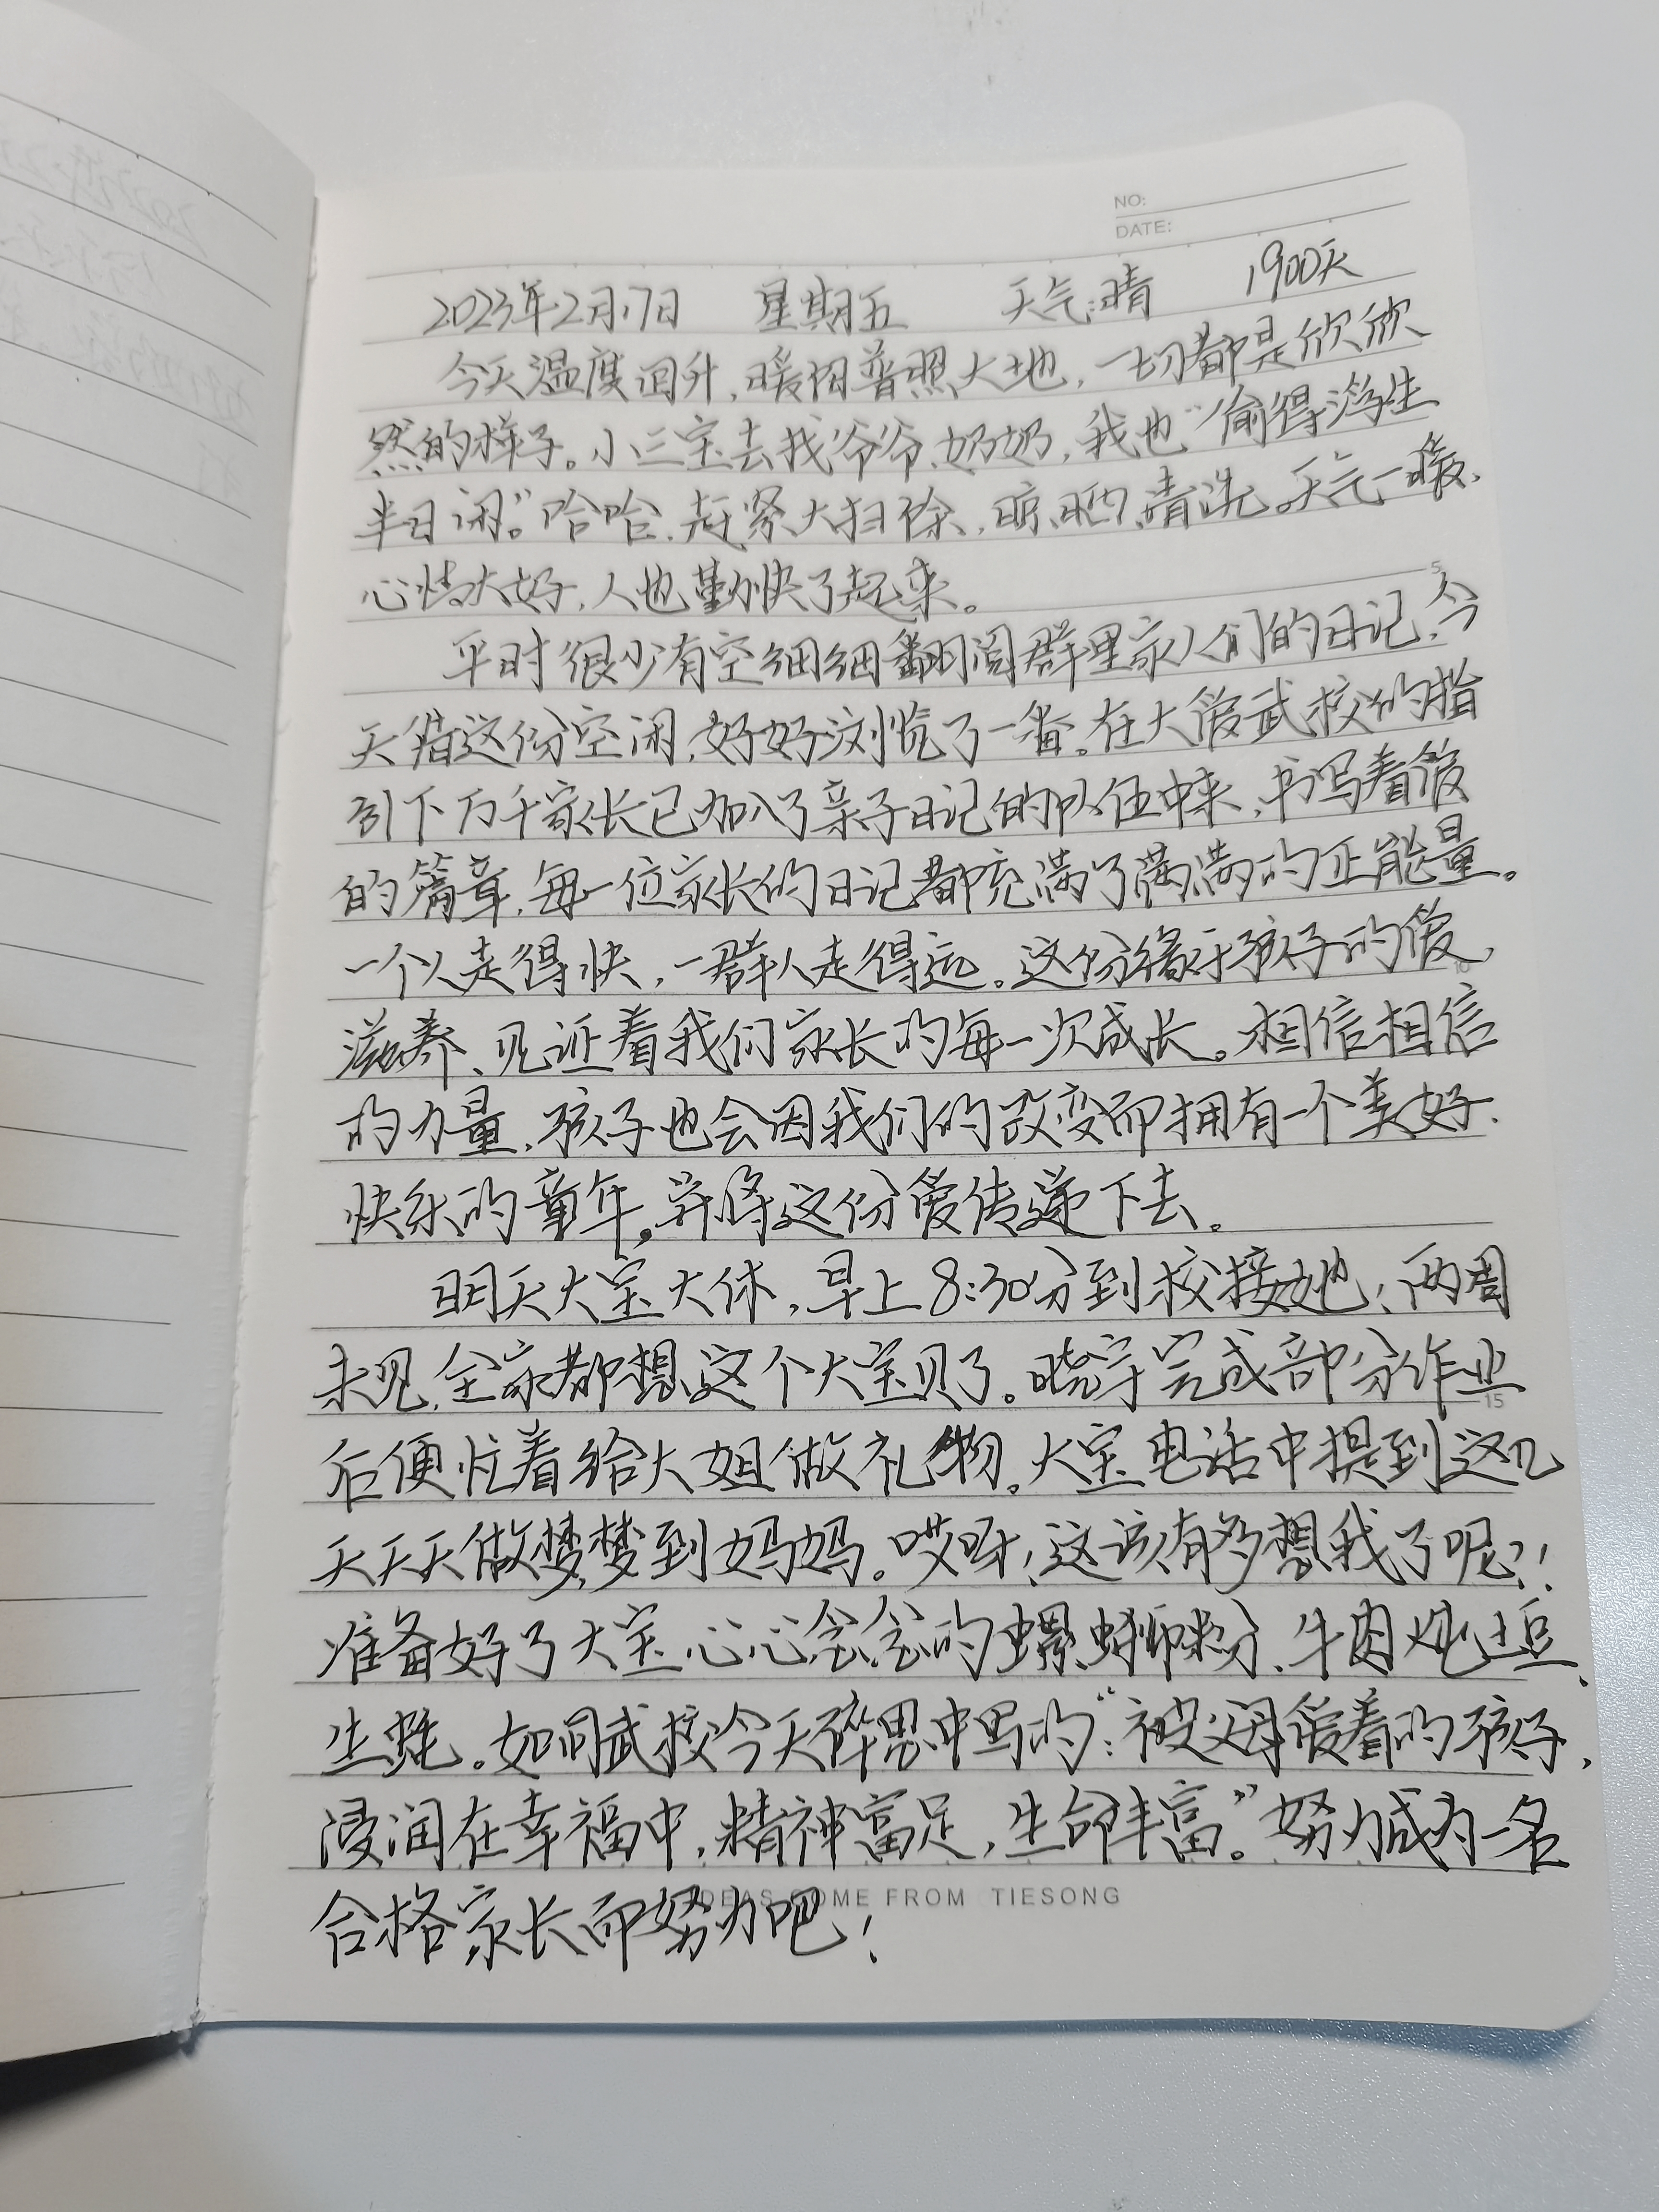 NO:
DATE:
2023年2月17日 星期五 天气:晴 1900天
今天温度回升,暖阳普照大地,一切都是欣欣
然的样子。小三宝去找爷爷、奶奶,我也“偷得浮生
半日闲。”哈哈,赶紧大扫除,晾、晒、清洗。天气一暖,
心情大好,人也勤快了起来。
5
平时很少有空细细翻阅群里家人们的日记,今
天借这份空闲,好好浏览了一番。在大爱武校的指
引下万千家长已加入了亲子日记的队伍中来,书写着爱
的篇章,每一位家长的日记都充满了满满的正能量。
一个人走得快,一群人走得远。这份缘于孩子的爱,
10
滋养、见证着我们家长的每一次成长。相信相信
的力量,孩子也会因我们的改变而拥有一个美好.
快乐的童年。并将这份爱传递下去。
明天大宝大休,早上8:30分到校接她;两周
未见,全家都想这个大宝贝了。晓宇完成部分作业
15
后便忙着给大姐做礼物。大宝电话中提到这几
天天天做梦梦到妈妈。哎呀!这该有多想我了呢?!
准备好了大宝心心念念的螺蛳粉、牛肉炖土豆、
生蚝。如同武校今天碎思中写的:“被父母爱着的孩子,
浸润在幸福中,精神富足,生命丰富。”努力成为一名
合格家长而努力吧!
IDEAS COME FROM TIESONG